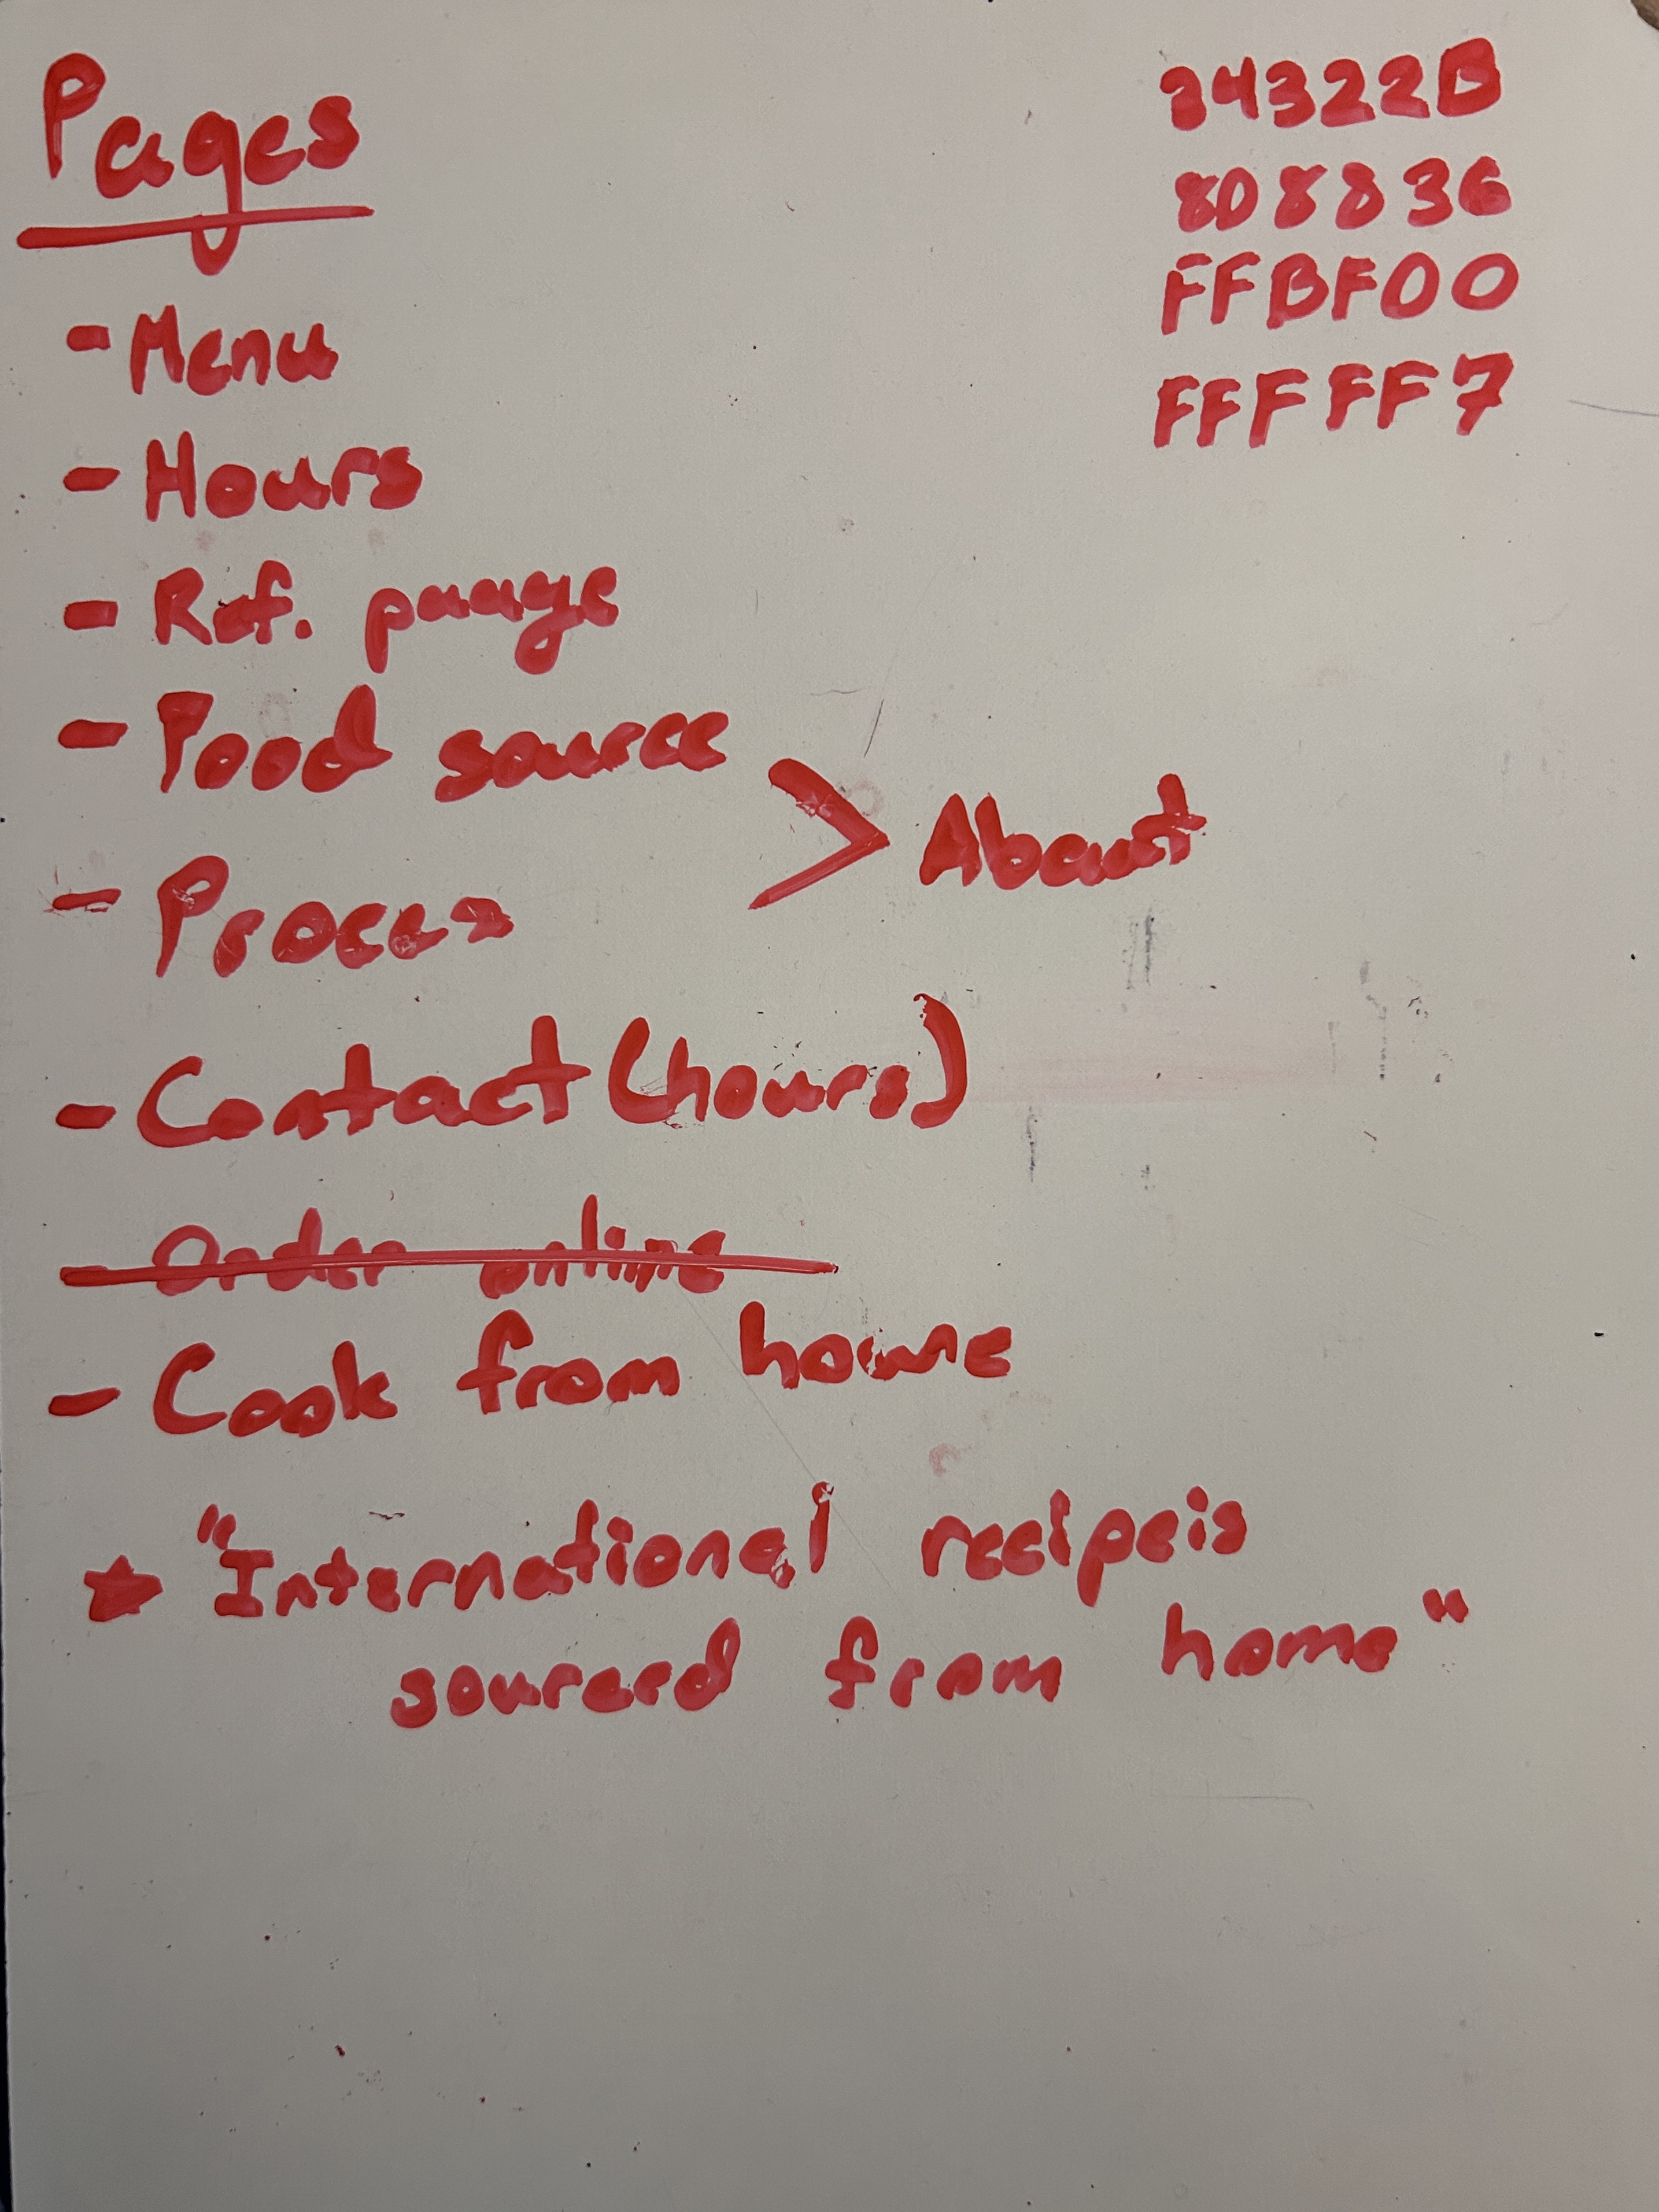 Pages
34322B
808836
FFBF00
FFFFF7
- Menu
- Hours
- Ref. paage
- Food source
- Process
> About
- Contact (hours)
- Order online
- Cook from home
★ "International recipeis
sourced from home"